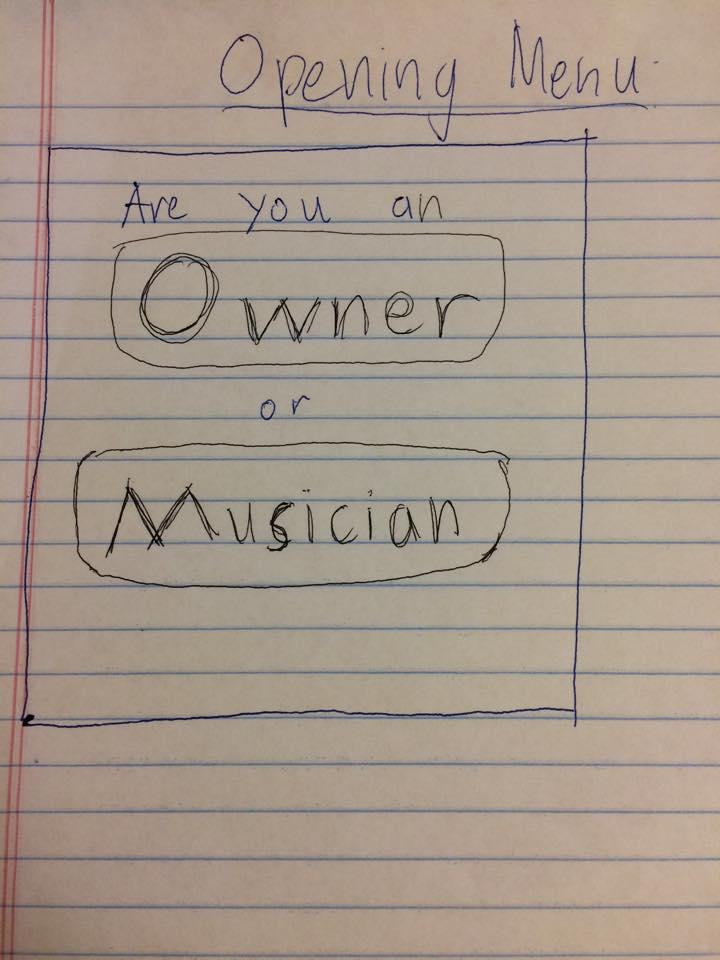 Opening Menu
Are you an
Owner
or
Musician